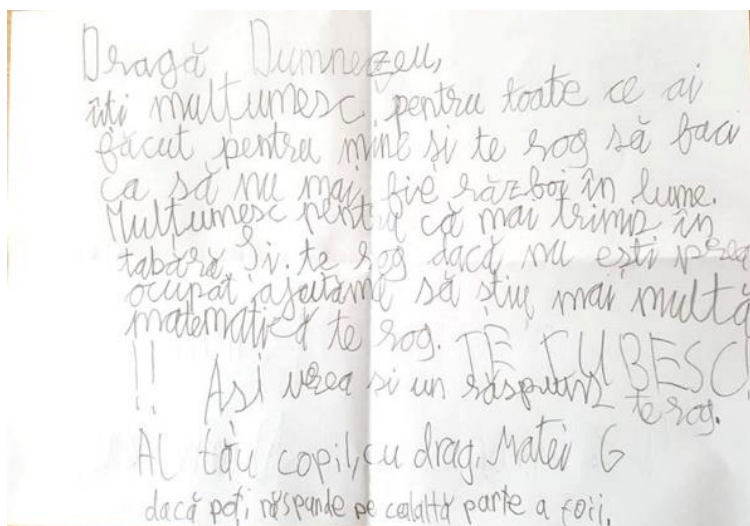 Dragă Dumnezeu,
îți mulțumesc pentru toate ce ai
făcut pentru mine și te rog să faci
ca să nu mai fie război în lume.
Mulțumesc pentru că mai trimis în
tabără. Și te rog dacă nu ești prea
ocupat ajutămă să știu mai multă
matematică te rog. TE IUBESC!
!! Asi vrea si un răspuns te rog.
Al tău copil, cu drag, Matei G
dacă poți răspunde pe cealaltă parte a foii.